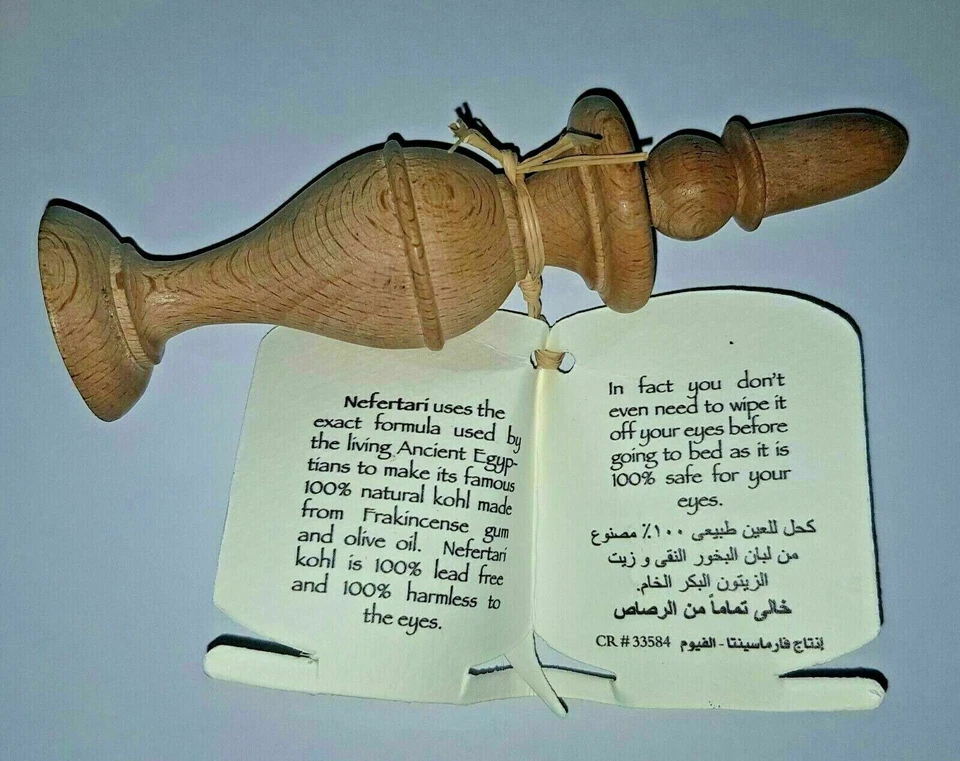 Nefertari uses the
exact formula used by
the living Ancient Egyp-
tians to make its famous
100% natural kohl made
from Frakincense gum
and olive oil. Nefertari
kohl is 100% lead free
and 100% harmless to
the eyes.
In fact you don't
even need to wipe it
off your eyes before
going to bed as it is
100% safe for your
eyes.
كحل للعين طبيعى ١٠٠٪ مصنوع
من لبان البخور النقى و زيت
الزيتون البكر الخام.
خالى تماماً من الرصاص
إنتاج فارماسينتا - الفيوم CR # 33584